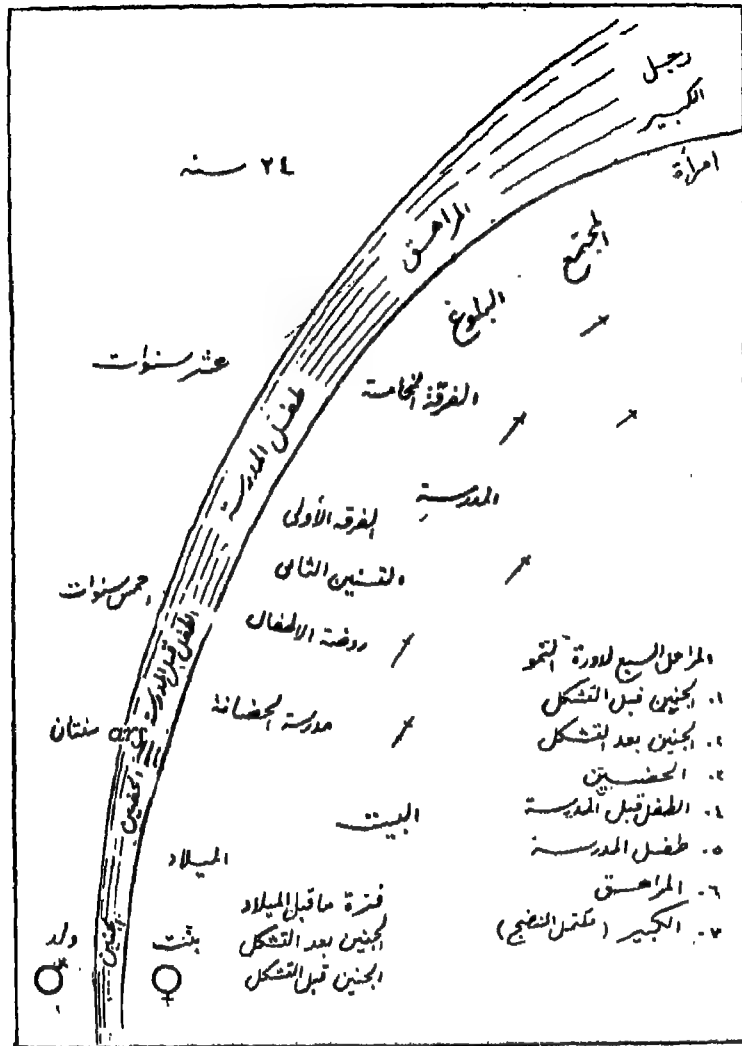 رجل
الكبير
امرأة
٢٤ سنه
المراهق
المجتمع
البلوغ
عشر سنوات
الفرقة الخامسة
طفل المدرسه
المدرسة
الفرقه الأولى
التسنين الثانى
خمس سنوات
روضة الاطفال
الطفل قبل المدرسه
مدرسة الحضانة
سنتان
الحضين
البيت
الميلاد
الجنين
ولد
بنت
فترة ماقبل الميلاد
الجنين بعد التشكل
الجنين قبل التشكل
المراحل السبع لدورة النمو
١. الجنين قبل التشكل
٢. الجنين بعد التشكل
٣. الحضين
٤. الطفل قبل المدرسة
٥. طفل المدرسة
٦. المراهق
٧. الكبير (مكتمل النضج)